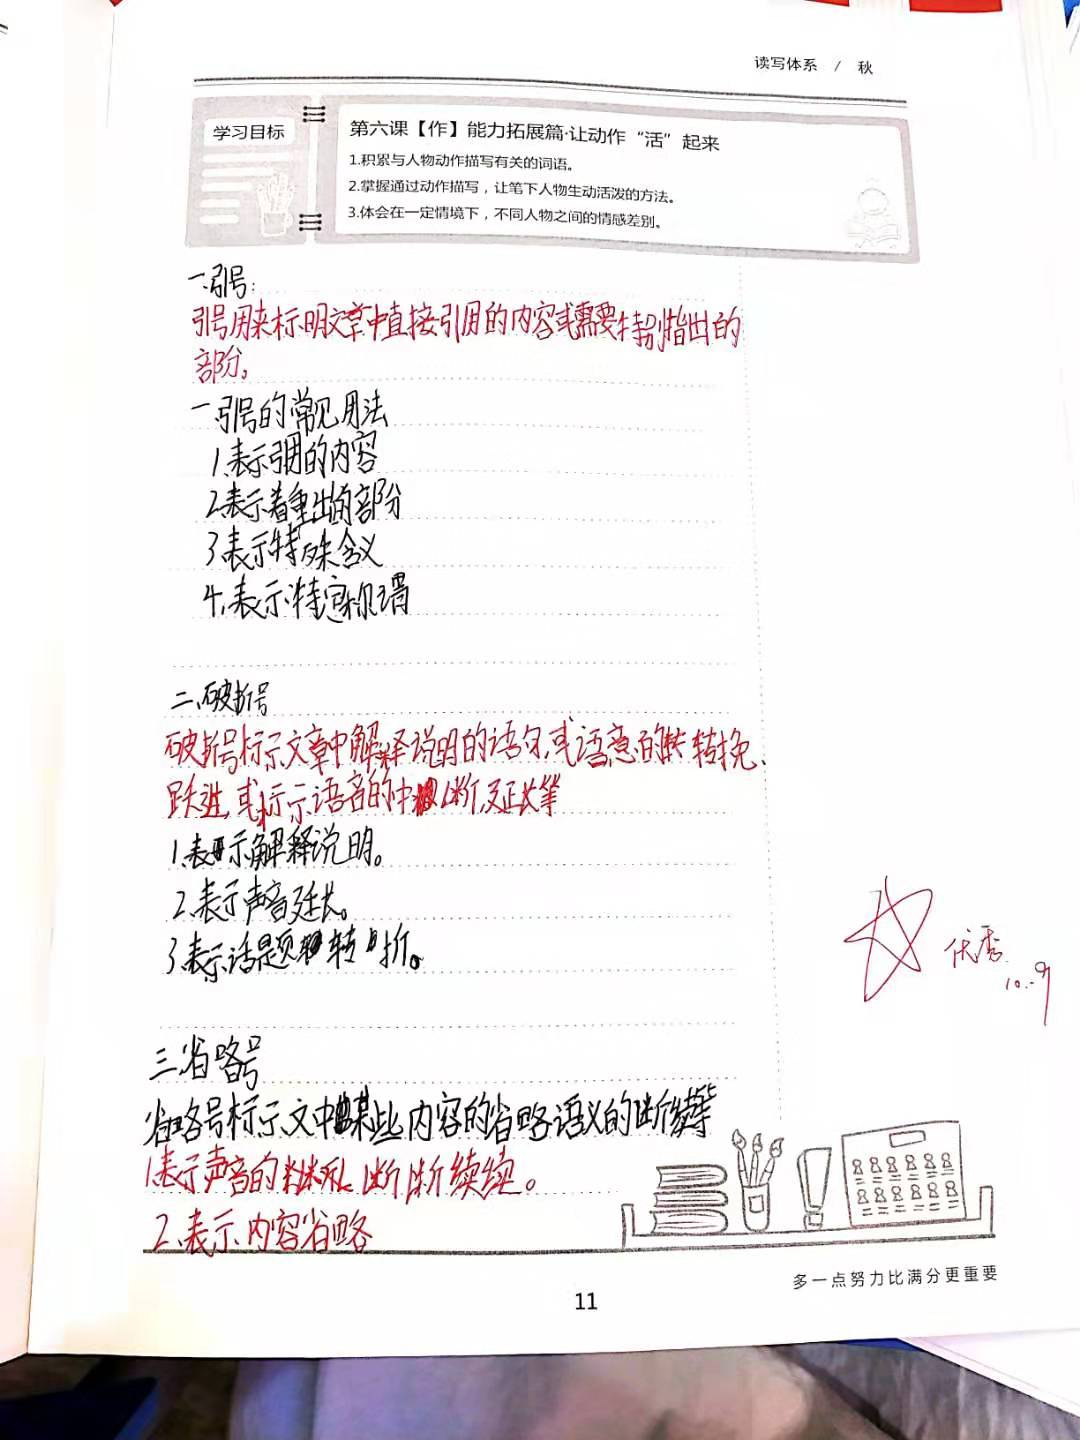 读写体系 / 秋
学习目标
第六课【作】能力拓展篇·让动作“活”起来
1.积累与人物动作描写有关的词语。
2.掌握通过动作描写，让笔下人物生动活泼的方法。
3.体会在一定情境下，不同人物之间的情感差别。
一.引号:
引号用来标明文章中直接引用的内容或需要特别指出的
部分。
一.引号的常见用法
1.表示引用的内容
2.表示着重指出的部分
3.表示特殊含义
4.表示特定称谓
二.破折号
破折号标示文章中解释说明的语句,或语意的转换、
跃进,或标示语音的中断,延长等
1.表示解释说明。
2.表示声音延长。
3.表示话题转折。
优秀
10.9
三.省略号
省略号标示文中某些内容的省略语义的断续等
1.表示声音的断断续续。
2.表示内容省略
多一点努力比满分更重要
11